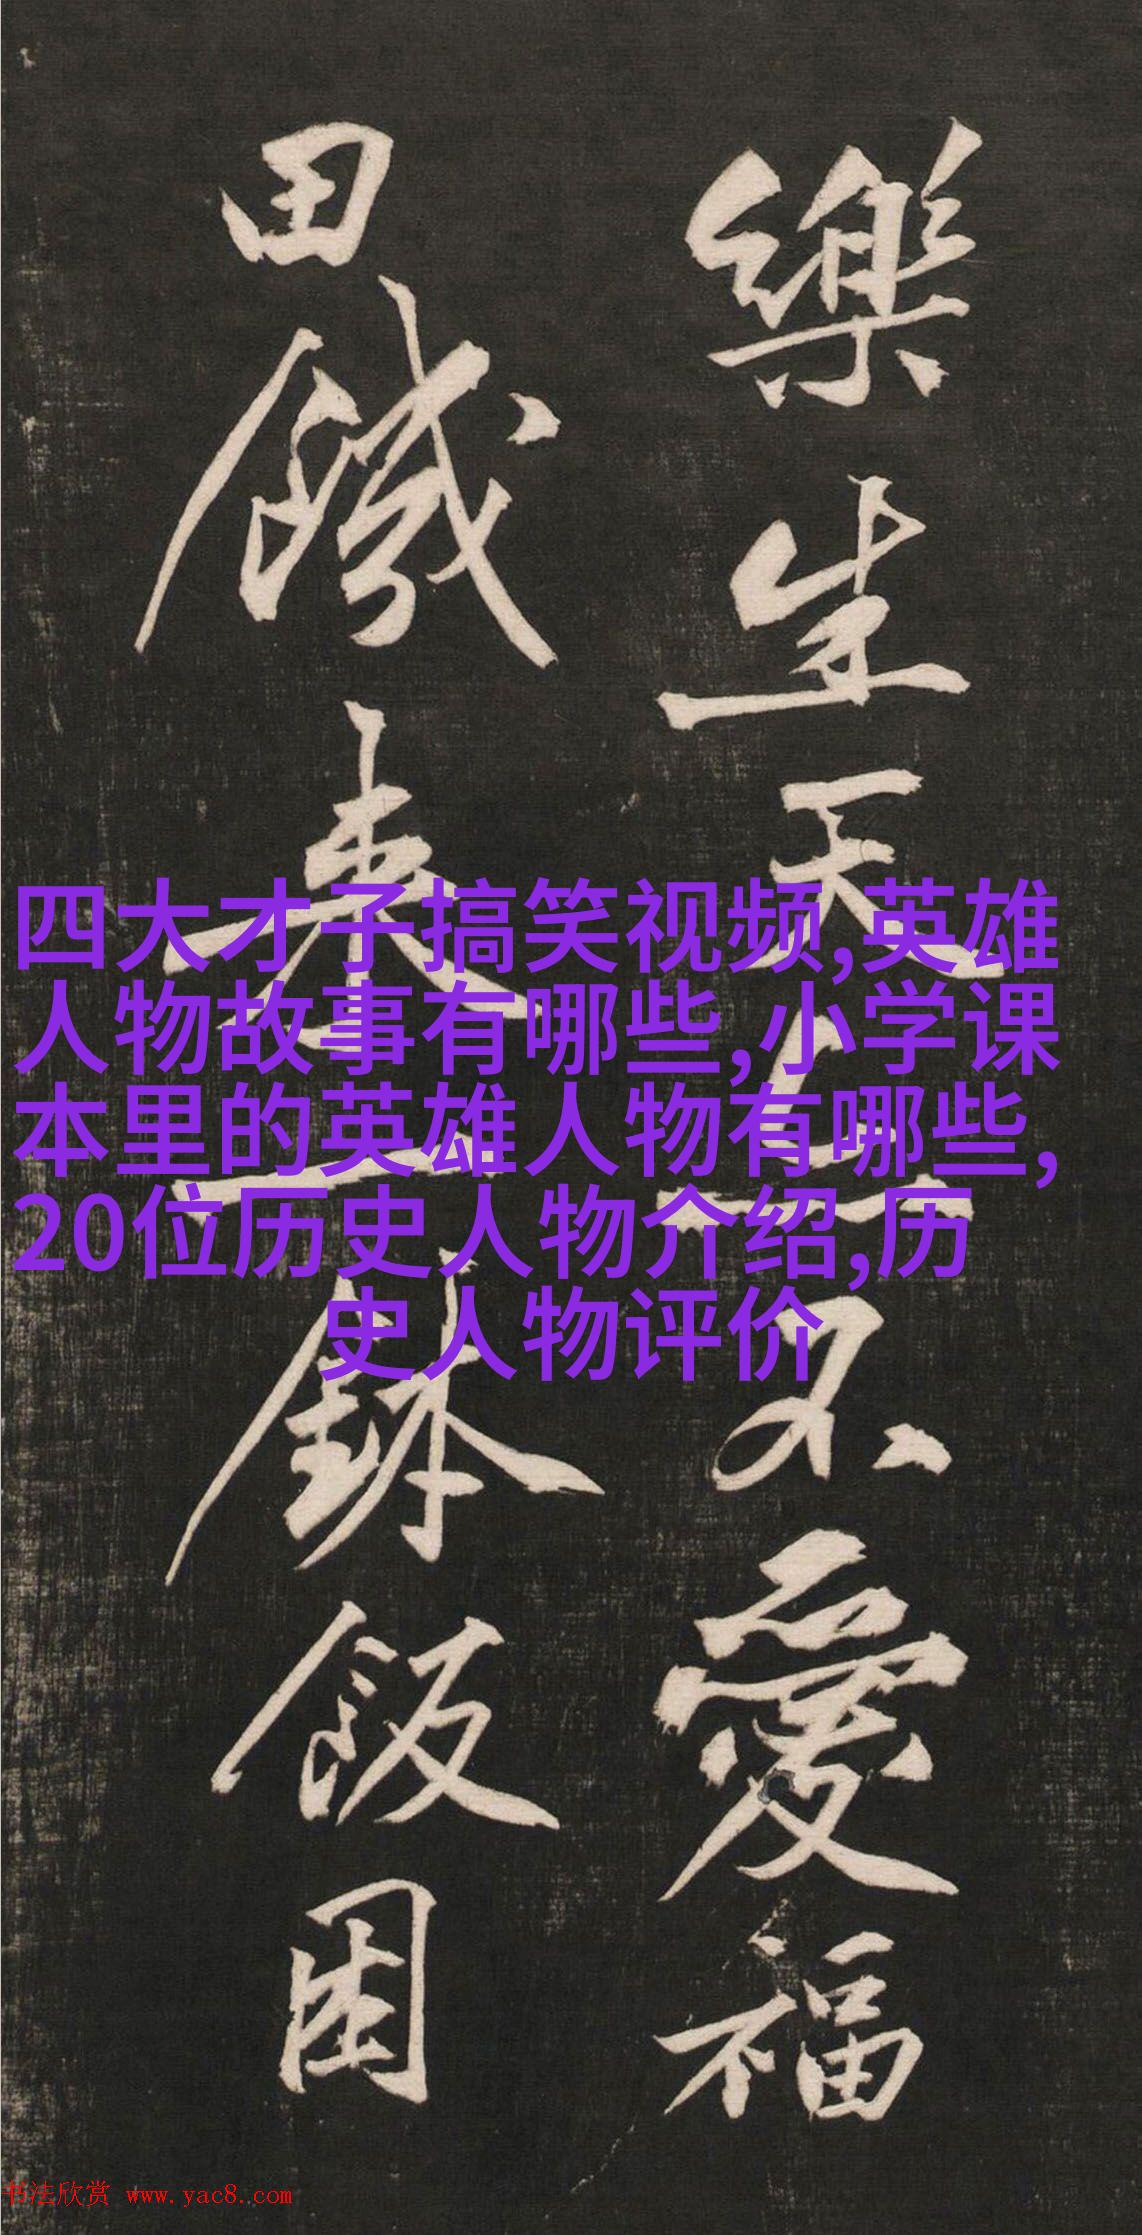 樂生天上不愛福
田饑来一鉢飯困
四大才子搞笑视频,英雄
人物故事有哪些,小学课
本里的英雄人物有哪些,
20位历史人物介绍,历
史人物评价
书法欣赏 www.yac8.com